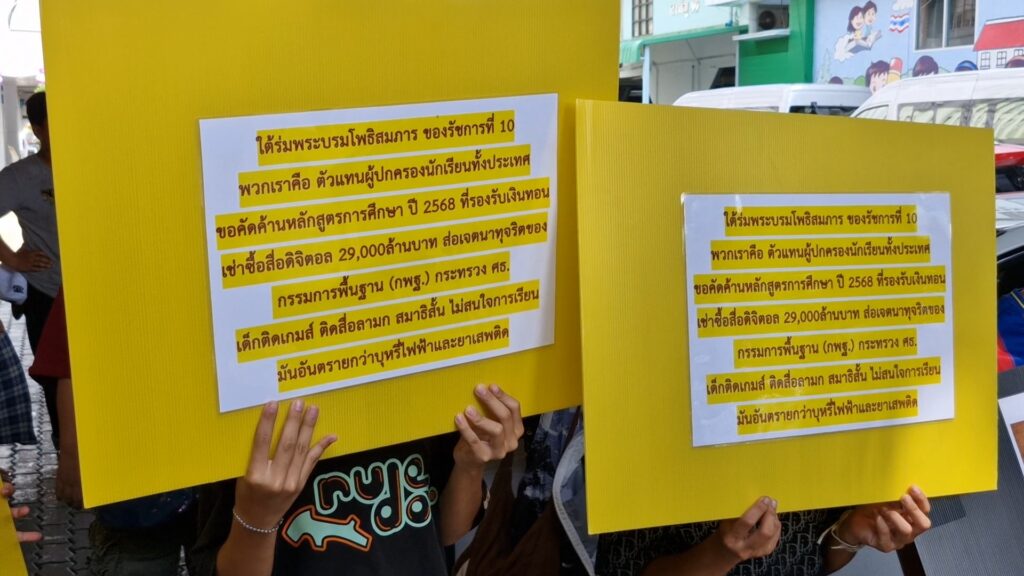 ใต้ร่มพระบรมโพธิสมภาร ของรัชการที่ 10
พวกเราคือ ตัวแทนผู้ปกครองนักเรียนทั้งประเทศ
ขอคัดค้านหลักสูตรการศึกษา ปี 2568 ที่รองรับเงินทอน
เช่าซื้อสื่อดิจิตอล 29,000ล้านบาท ส่อเจตนาทุจริตของ
กรรมการพื้นฐาน (กพฐ.) กระทรวง ศธ.
เด็กติดเกมส์ ติดสื่อลามก สมาธิสั้น ไม่สนใจการเรียน
มันอันตรายกว่าบุหรี่ไฟฟ้าและยาเสพติด
ใต้ร่มพระบรมโพธิสมภาร ของรัชการที่ 10
พวกเราคือ ตัวแทนผู้ปกครองนักเรียนทั้งประเทศ
ขอคัดค้านหลักสูตรการศึกษา ปี 2568 ที่รองรับเงินทอน
เช่าซื้อสื่อดิจิตอล 29,000ล้านบาท ส่อเจตนาทุจริตของ
กรรมการพื้นฐาน (กพฐ.) กระทรวง ศธ.
เด็กติดเกมส์ ติดสื่อลามก สมาธิสั้น ไม่สนใจการเรียน
มันอันตรายกว่าบุหรี่ไฟฟ้าและยาเสพติด